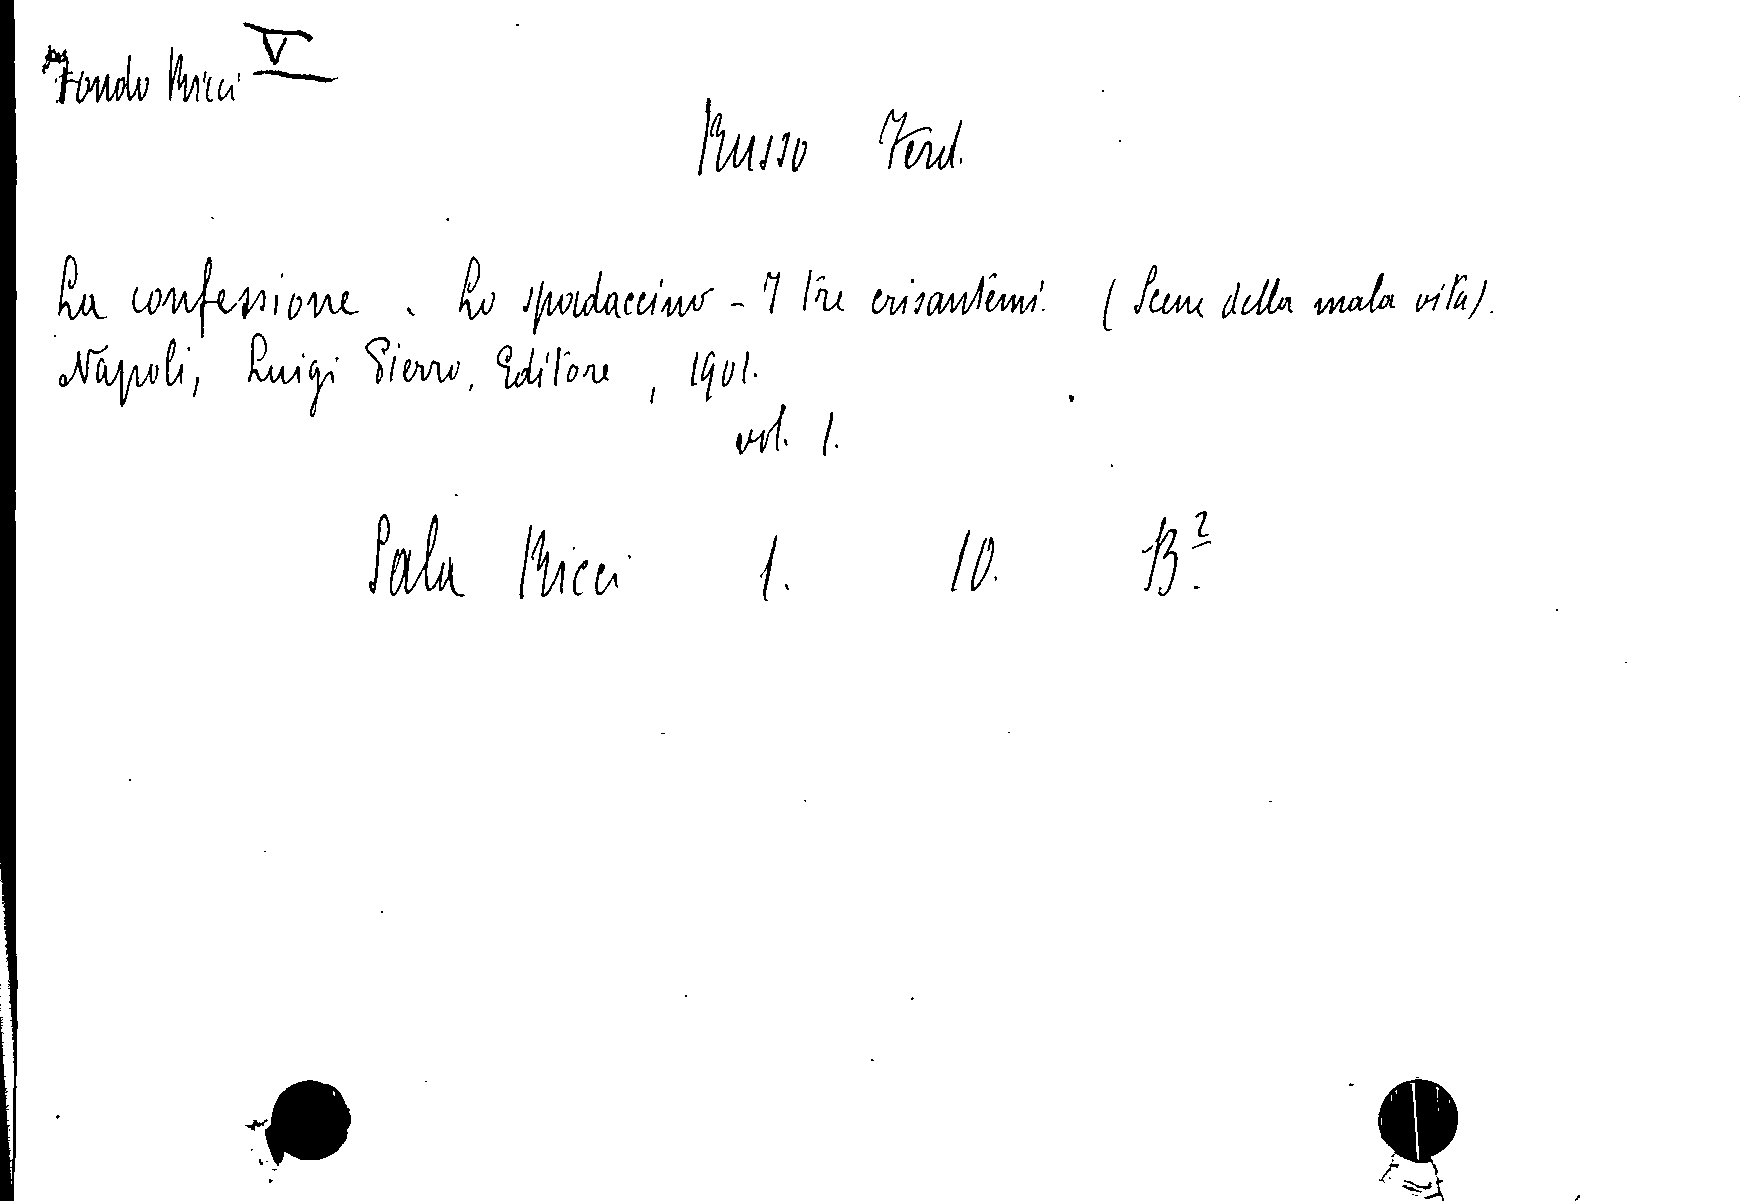 Fondo Ricci V
Russo Ferd.
La confessione. Lo spadaccino - I tre crisantemi. (Scene della mala vita).
Napoli, Luigi Pierro, Editore, 1901.
vol. 1.
Sala Ricci 1. 10. B².